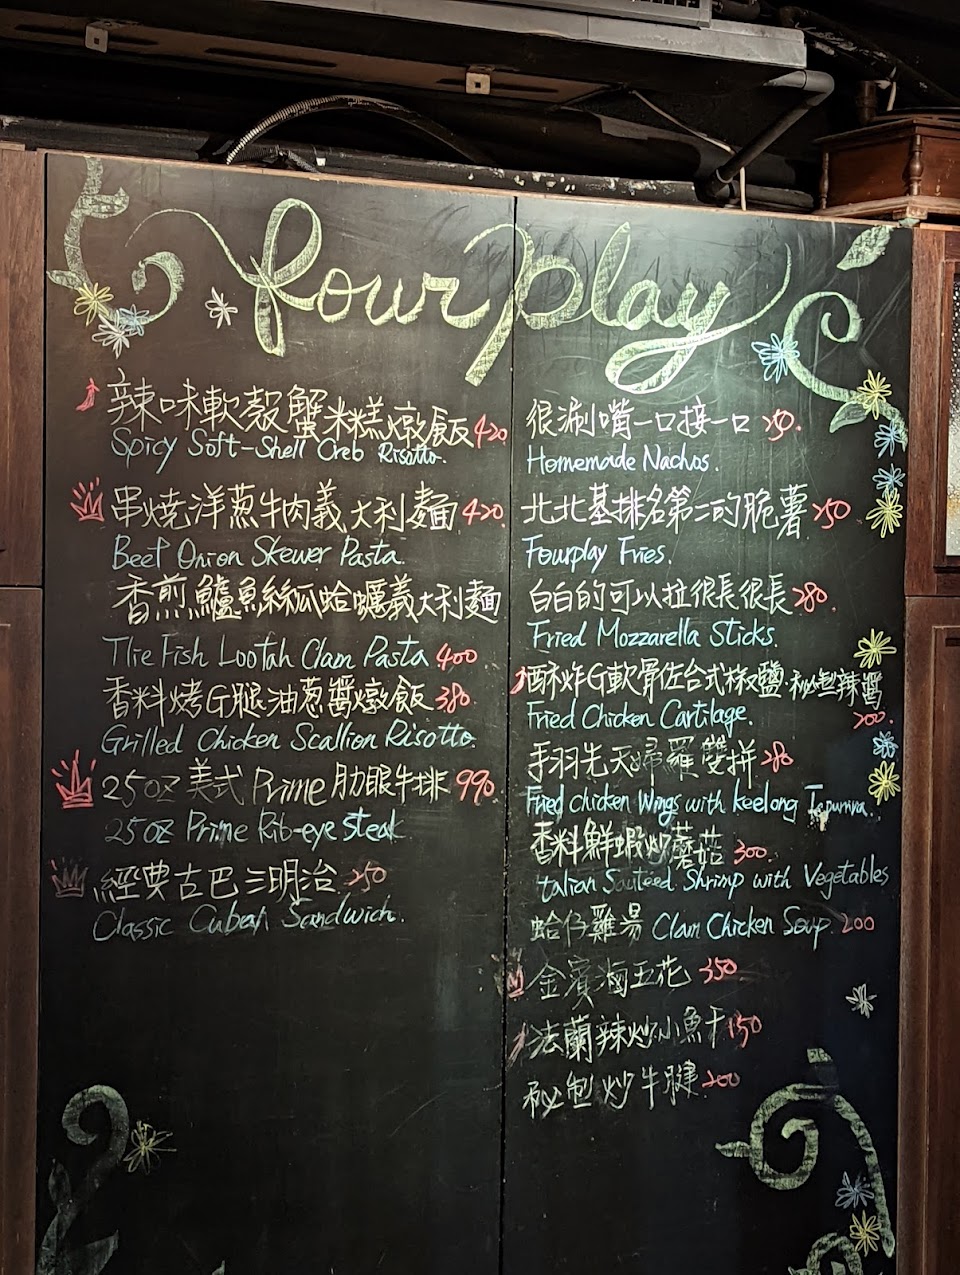 fourplay
辣味軟殼蟹米糕燉飯 420
Spicy Soft-Shell Creb Risotto.
串燒洋蔥牛肉義大利麵 420.
Beef Onion Skewer Pasta.
香煎鱸魚絲瓜蛤蠣義大利麵
The Fish Loofah Clam Pasta 400
香料烤G腿油蔥醬燉飯 380.
Grilled Chicken Scallion Risotto.
25oz 美式 Prime 肋眼牛排 990.
25oz Prime Rib-eye steak
經典古巴三明治 250
Classic Cuban Sandwich.
很涮嘴一口接一口 250.
Homemade Nachos.
北北基排名第二的脆薯 250
Fourplay Fries.
白白的可以拉很長很長 280.
Fried Mozzarella Sticks.
酥炸G軟骨佐台式椒鹽.秘製辣醬
200.
Fried Chicken Cartilage.
手羽先天婦羅雙拼 280
Fried chicken Wings with keelong
香料鮮蝦炒蘑菇 300.
talian Sauteed Shrimp with Vegetables
蛤仔雞湯 Clam Chicken Soup. 200
金賓滷五花 350
法蘭辣炒小魚干 150
秘製炒牛腱 200